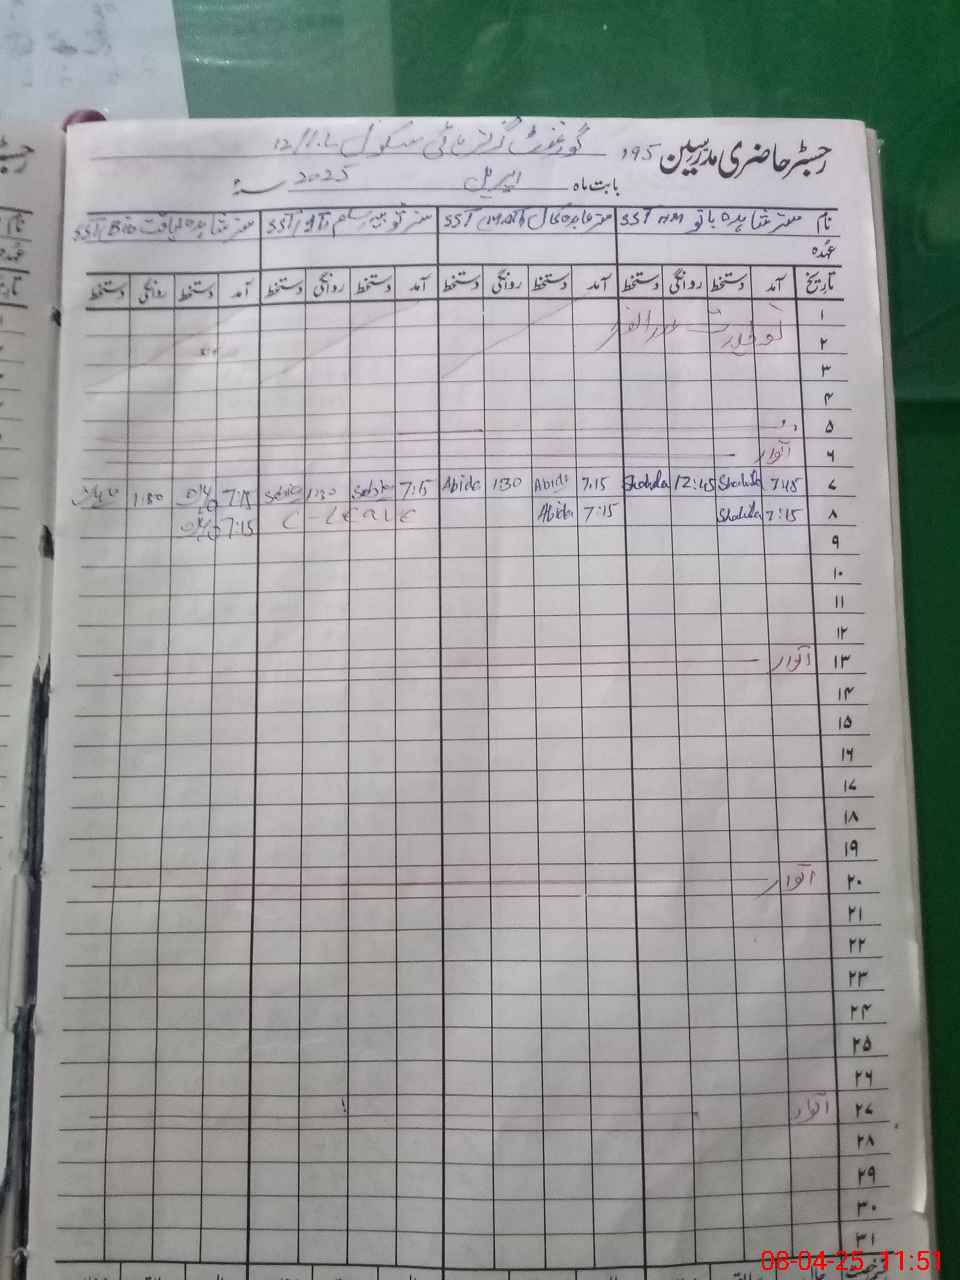 رجسٹر حاضری مدرسین 195 گورنمنٹ گرلز ہائی سکول 12/1.L
بابت ماہ اپریل سنہ 2025
نام مسز شاہدہ بانو SST HM مسز عابدہ SST MATH مسز SST IT مسز شاہدہ لیاقت SST Bio
عہدہ
تاریخ آمد دستخط روانگی دستخط آمد دستخط روانگی دستخط آمد دستخط روانگی دستخط آمد دستخط روانگی دستخط
۱
۲
۳
۴
۵
۶ اتوار
۷ 7:45 Shahida 12:45 Shahida 7:15 Abida 1:30 Abida 7:15 1:30 7:15 1:30
۸ 7:15 Shahida 7:15 Abida C-LEAVE 7:15
۹
۱۰
۱۱
۱۲
۱۳ اتوار
۱۴
۱۵
۱۶
۱۷
۱۸
۱۹
۲۰ اتوار
۲۱
۲۲
۲۳
۲۴
۲۵
۲۶
۲۷ اتوار
۲۸
۲۹
۳۰
۳۱
08-04-25 11:51